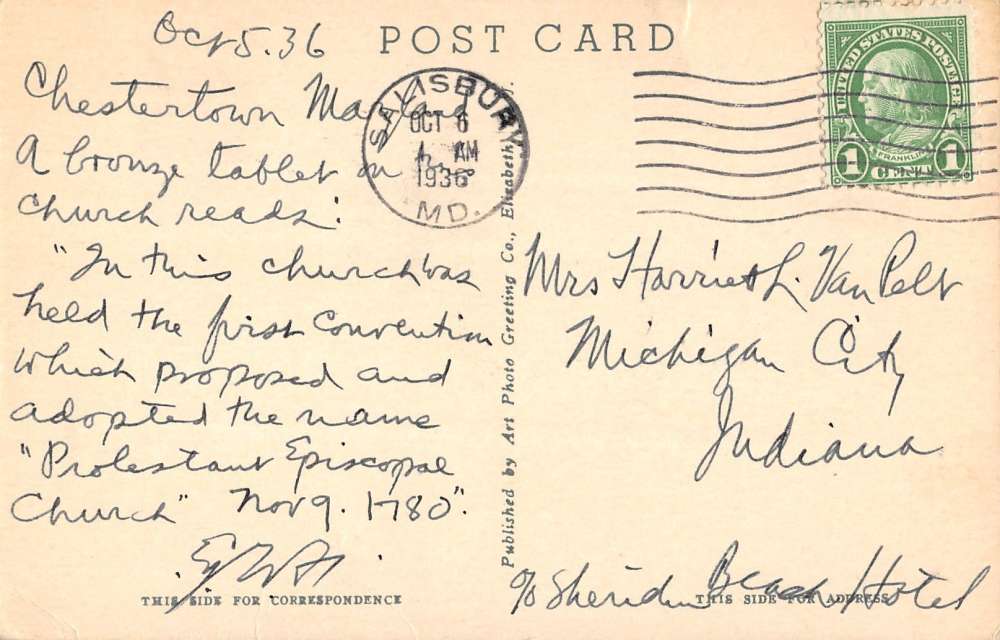 Oct 5. 36
POST CARD
Chestertown Maryland
A bronze tablet on
church reads:
"In this church was
held the first Convention
which proposed and
adopted the name
"Protestant Episcopal
Church" Nov 9. 1780".
THIS SIDE FOR CORRESPONDENCE
SALISBURY
OCT 6
AM
1936
MD.
Published by Art Photo Greeting Co., Elizabeth,
UNITED STATES POSTAGE
FRANKLIN
1 CENT 1
Mrs Harriet L. Van Pelt
Michigan City
Indiana
c/o Sheridan Beach Hotel
THIS SIDE FOR ADDRESS